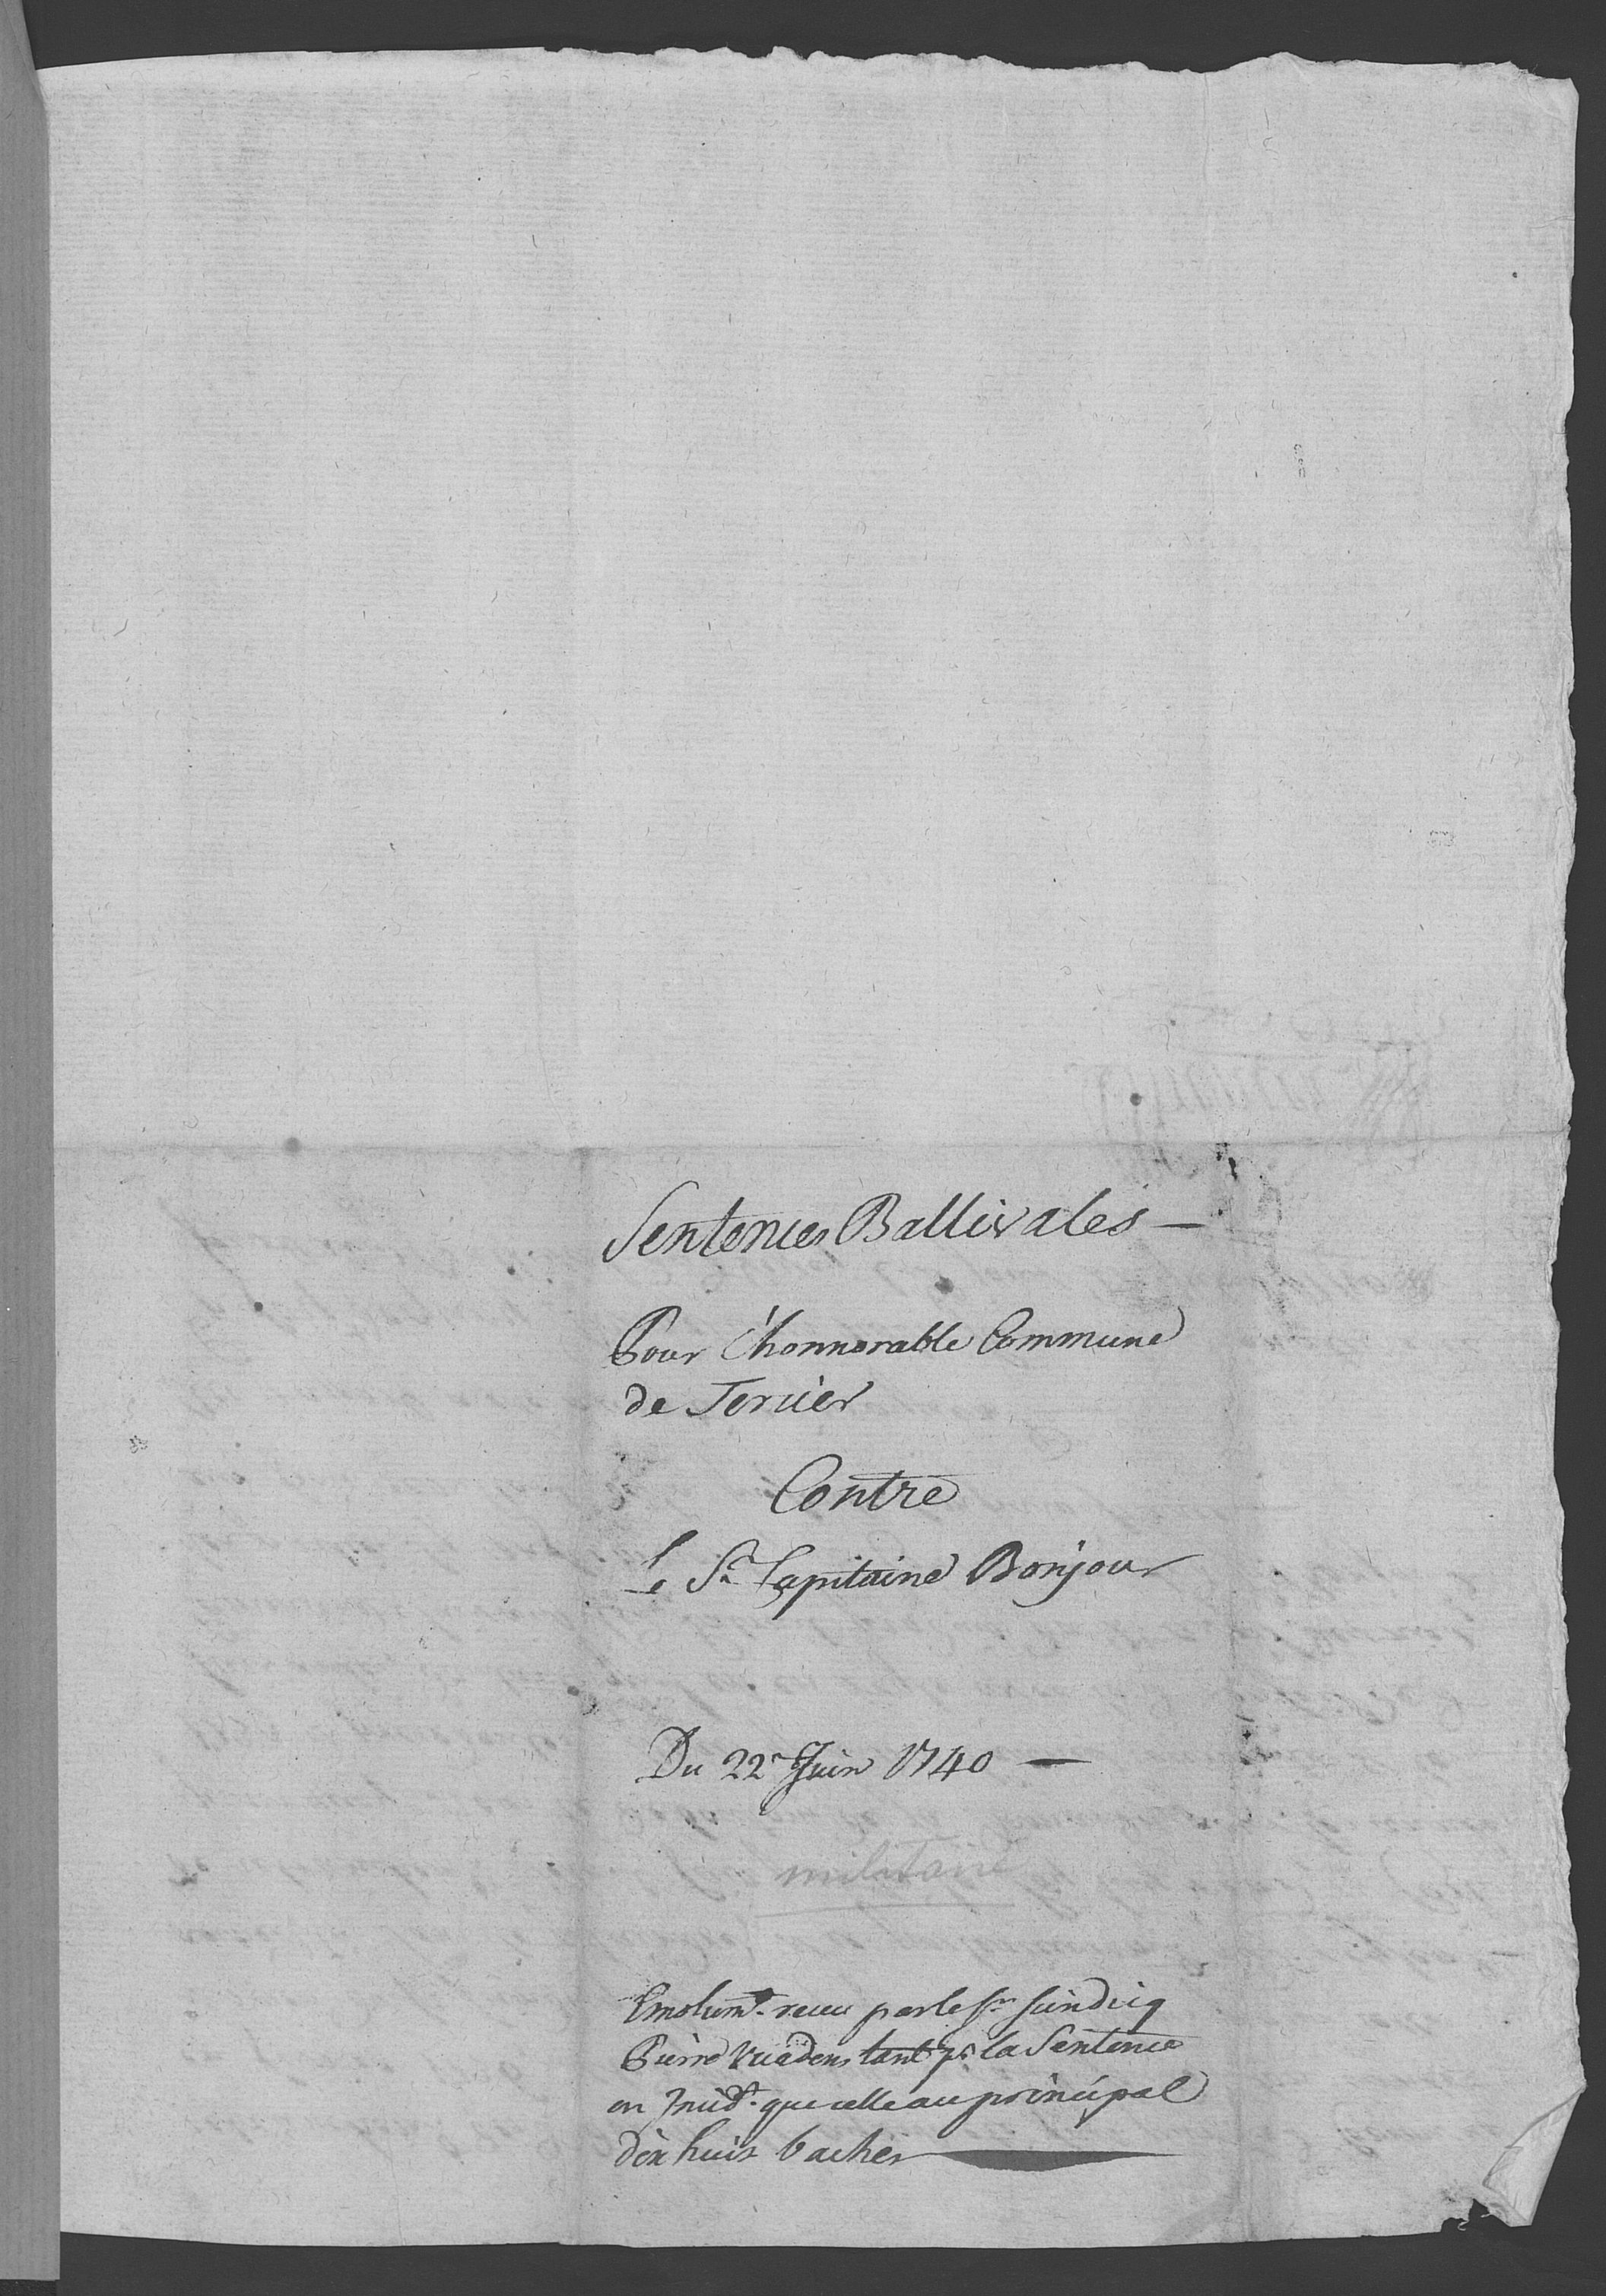 Sentences Ballivales —
Pour l'honnorable Commune
de Tercier
Contre
Le Sr. Capitaine Bonjour
Du 22e Juin 1740 —
militaire
Emolumt. receu par le Sr. sindicq
Pierre Vuadens tant pr. la Sentence
en Incidt. que celle au principal
dix huit baches